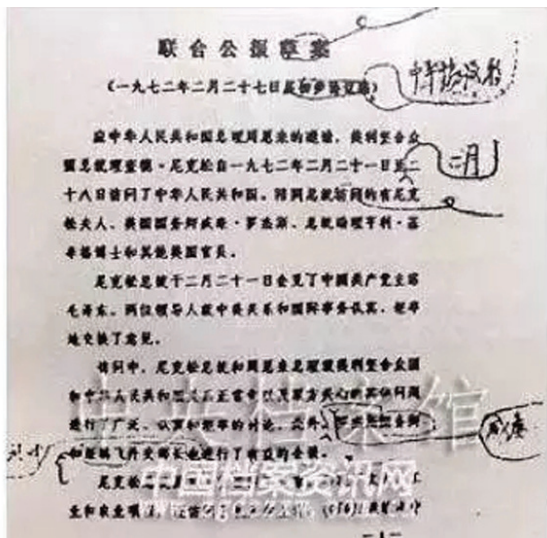 联合公报草案
(一九七二年二月二十七日
应中华人民共和国总理周恩来的邀请,美利坚合众
国总统理查德·尼克松自一九七二年二月二十一日至二
十八日访问了中华人民共和国。陪同总统访问的有尼克
松夫人、美国国务卿威廉·罗杰斯、总统助理亨利·基
辛格博士和其他美国官员。
尼克松总统于二月二十一日会见了中国共产党主席
毛泽东。两位领导人就中美关系和国际事务认真、坦率
地交换了意见。
访问中,尼克松总统和周恩来总理就美利坚合众国
和中华人民共和国关系正常化以及双方关心的其他问题
进行了广泛、认真和坦率的讨论。此外,
和姬鹏飞外交部长也进行了有益的会谈。
尼克松总统
业和农业项目,
二月
中央档案馆
中国档案资讯网